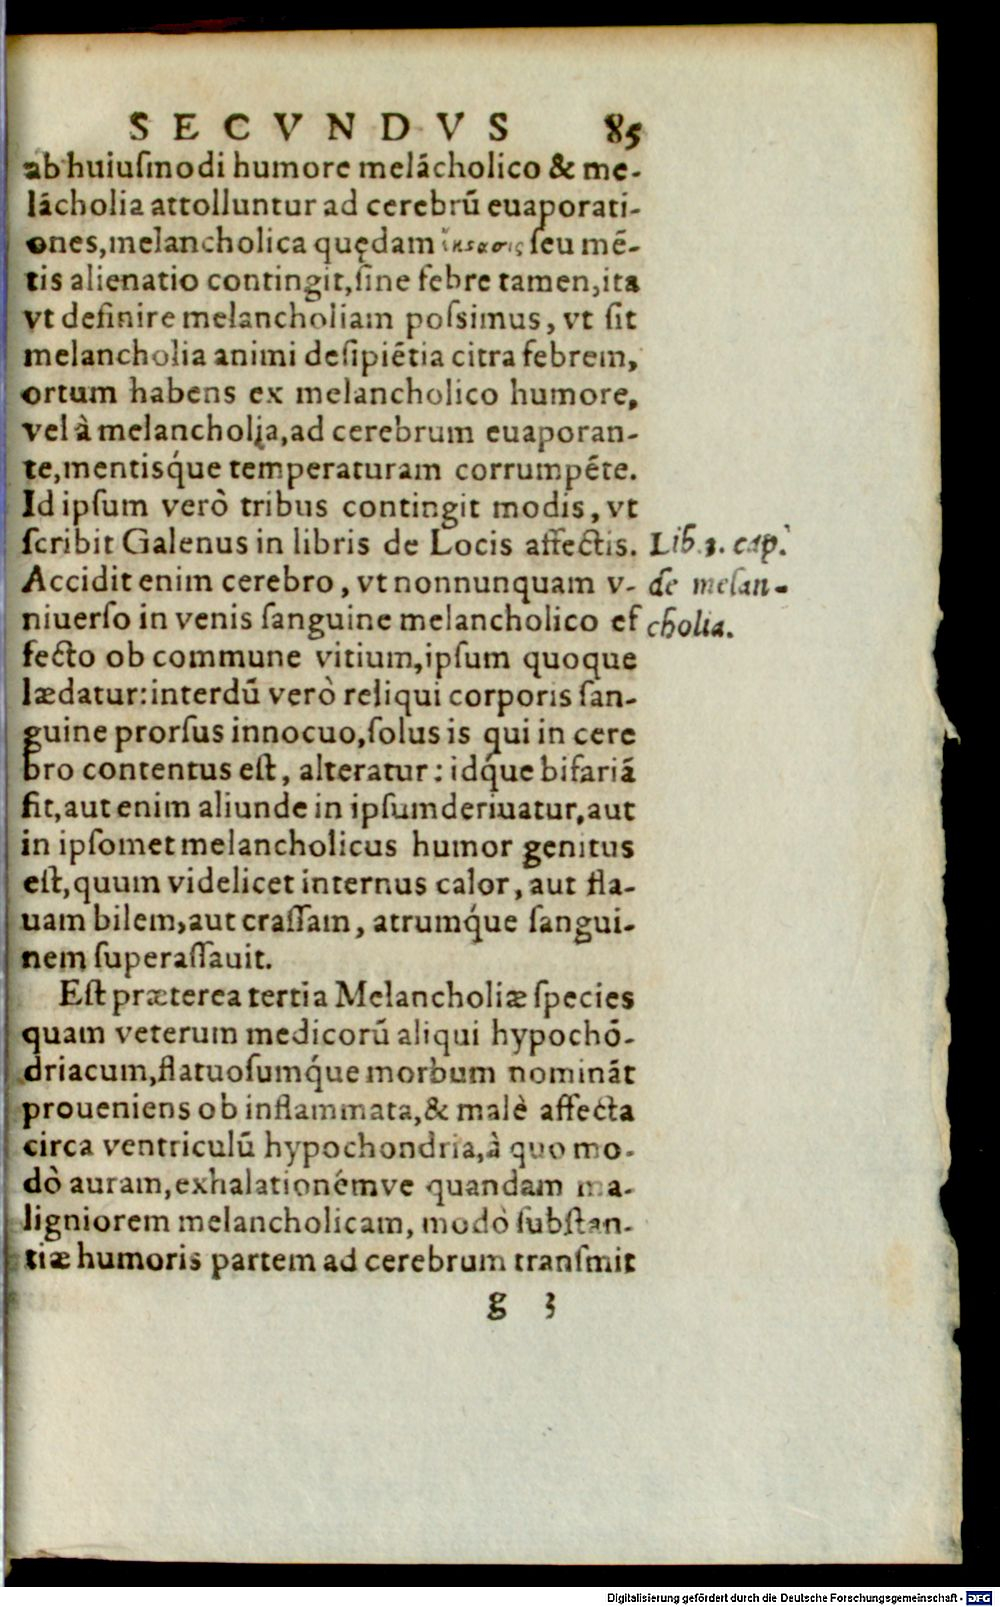 SECVNDVS 85
ab huiuſmodi humore melãcholico & me-
lãcholia attolluntur ad cerebrũ euaporati-
ones, melancholica quędam ἔκστασις ſeu mẽ-
tis alienatio contingit, ſine febre tamen, ita
vt definire melancholiam poſsimus, vt ſit
melancholia animi deſipiẽtia citra febrem,
ortum habens ex melancholico humore,
vel à melancholia, ad cerebrum euaporan-
te, mentisq́ue temperaturam corrumpẽte.
Id ipſum verò tribus contingit modis, vt
ſcribit Galenus in libris de Locis affectis.
Lib. 3. cap.
Accidit enim cerebro, vt nonnunquam v-
de melan-
niuerſo in venis ſanguine melancholico ef
cholia.
fecto ob commune vitium, ipſum quoque
lædatur: interdũ verò reliqui corporis ſan-
guine prorſus innocuo, ſolus is qui in cere
bro contentus eſt, alteratur: idq́ue bifariã
fit, aut enim aliunde in ipſum deriuatur, aut
in ipſomet melancholicus humor genitus
eſt, quum videlicet internus calor, aut fla-
uam bilem, aut craſſam, atrumq́ue ſangui-
nem ſuperaſſauit.
Eſt præterea tertia Melancholiæ ſpecies
quam veterum medicorũ aliqui hypochõ-
driacum, flatuoſumq́ue morbum nominãt
proueniens ob inflammata, & malè affecta
circa ventriculũ hypochondria, à quo mo-
dò auram, exhalationémve quandam ma-
ligniorem melancholicam, modò ſubſtan-
tiæ humoris partem ad cerebrum tranſmit
g 3
Digitalisierung gefördert durch die Deutsche Forschungsgemeinschaft - DFG